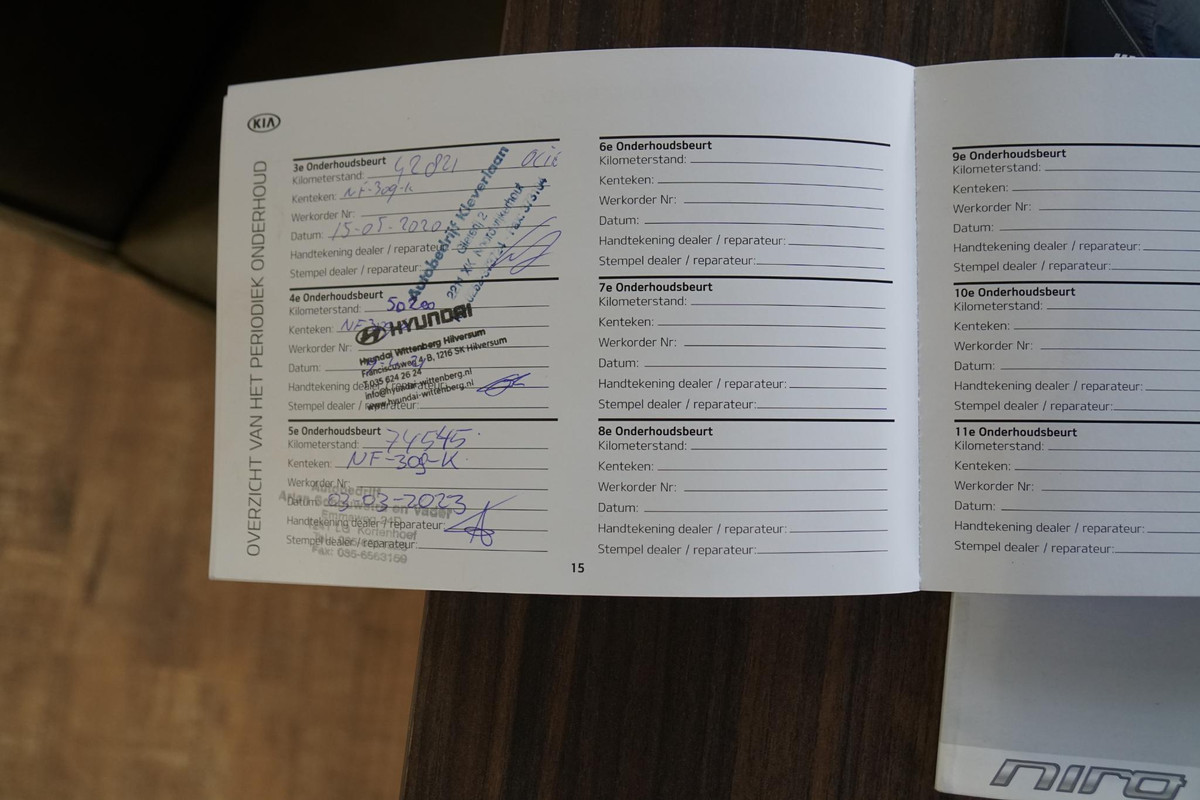 KIA
OVERZICHT VAN HET PERIODIEK ONDERHOUD
3e Onderhoudsbeurt
Kilometerstand: 42821 OCIE
Kenteken: NF-309-K
Werkorder Nr:
Datum: 15-05-2020
Handtekening dealer / reparateur:
Stempel dealer / reparateur:
Autobedrijf Kleverlaan
4e Onderhoudsbeurt
Kilometerstand: 50200
Kenteken: NF-309-K
Werkorder Nr:
Datum:
Handtekening dealer / reparateur:
Stempel dealer / reparateur:
HYUNDAI
Hyundai Wittenberg Hilversum
Franciscusweg -B, 1216 SK Hilversum
T 035 624 26 24
info@hyundai-wittenberg.nl
www.hyundai-wittenberg.nl
5e Onderhoudsbeurt
Kilometerstand: 74545
Kenteken: NF-309-K
Werkorder Nr:
Datum: 03-03-2023
Handtekening dealer / reparateur:
Stempel dealer / reparateur:
Autobedrijf
en Vader
Kortenhoef
Fax: 035-6563159
15
6e Onderhoudsbeurt
Kilometerstand:
Kenteken:
Werkorder Nr:
Datum:
Handtekening dealer / reparateur:
Stempel dealer / reparateur:
7e Onderhoudsbeurt
Kilometerstand:
Kenteken:
Werkorder Nr:
Datum:
Handtekening dealer / reparateur:
Stempel dealer / reparateur:
8e Onderhoudsbeurt
Kilometerstand:
Kenteken:
Werkorder Nr:
Datum:
Handtekening dealer / reparateur:
Stempel dealer / reparateur:
9e Onderhoudsbeurt
Kilometerstand:
Kenteken:
Werkorder Nr:
Datum:
Handtekening dealer / reparateur:
Stempel dealer / reparateur:
10e Onderhoudsbeurt
Kilometerstand:
Kenteken:
Werkorder Nr:
Datum:
Handtekening dealer / reparateur:
Stempel dealer / reparateur:
11e Onderhoudsbeurt
Kilometerstand:
Kenteken:
Werkorder Nr:
Datum:
Handtekening dealer / reparateur:
Stempel dealer / reparateur:
niro